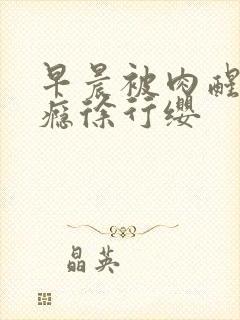 早晨被肉醒
瘾徐行缨
晶英